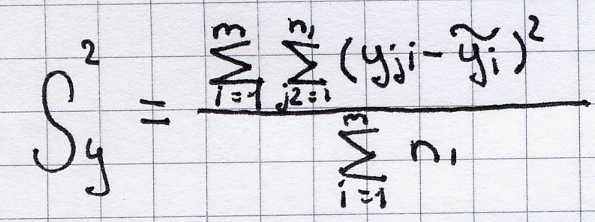 S_y^2 = \frac{\sum_{i=1}^{m} \sum_{j2=1}^{n_i} (y_{ji} - \widetilde{y}_i)^2}{\sum_{i=1}^{m} n_i}